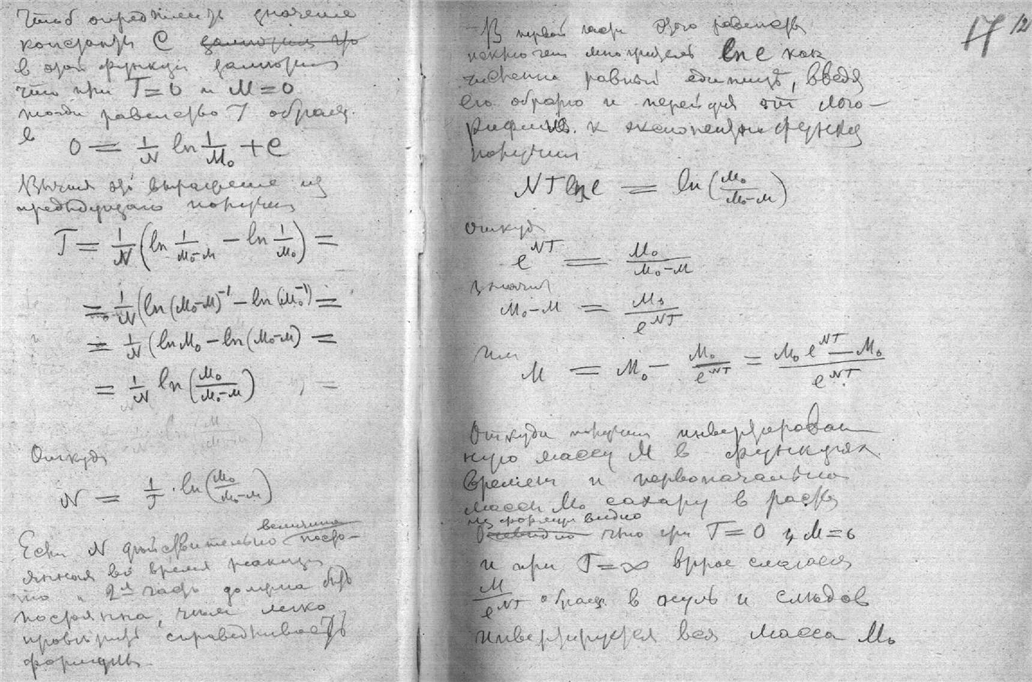 Чтоб определить значение
константы C ~~заметим что~~
в этой функции заметим
что при T=0 и M=0
тогда равенство 7 обращ.
в 0 = \frac{1}{N} ln \frac{1}{M₀} + C
Вычтя это выражение из
предыдущаго получим
T = \frac{1}{N} (ln \frac{1}{M₀-M} - ln \frac{1}{M₀}) =
= \frac{1}{N} (ln (M₀-M)⁻¹ - ln (M₀⁻¹) =
= \frac{1}{N} (ln M₀ - ln (M₀-M) =
= \frac{1}{N} ln (\frac{M₀}{M₀-M})
Откуда
N = \frac{1}{T} · ln (\frac{M₀}{M₀-M})
величина
Если N действительно посто-
янная во время реакции
то и 2ая часть должна быть
постоянна, чем легко
проверить справедливость
формулы.
17 12
В первой части этого равенства
множитель ln e как
численно равный единице, введя
его обратно и перейдя от лога-
рифмов к экспоненц. функции
получим
NT ln e = ln (\frac{M₀}{M₀-M})
Откуда
e^{NT} = \frac{M₀}{M₀-M}
значит
M₀-M = \frac{M₀}{e^{NT}}
или
M = M₀ - \frac{M₀}{e^{NT}} = \frac{M₀ e^{NT} - M₀}{e^{NT}}
Откуда получим инвертирован
ную массу M в функциях
времени и первоначальной
массы M₀ сахару в раств.
из формулы видно
~~Очевидно~~ что при T=0 и M=0
и при T=∞ второе слагаем
\frac{M}{e^{NT}} обращ. в нуль и следов
инвертируется вся масса M₀